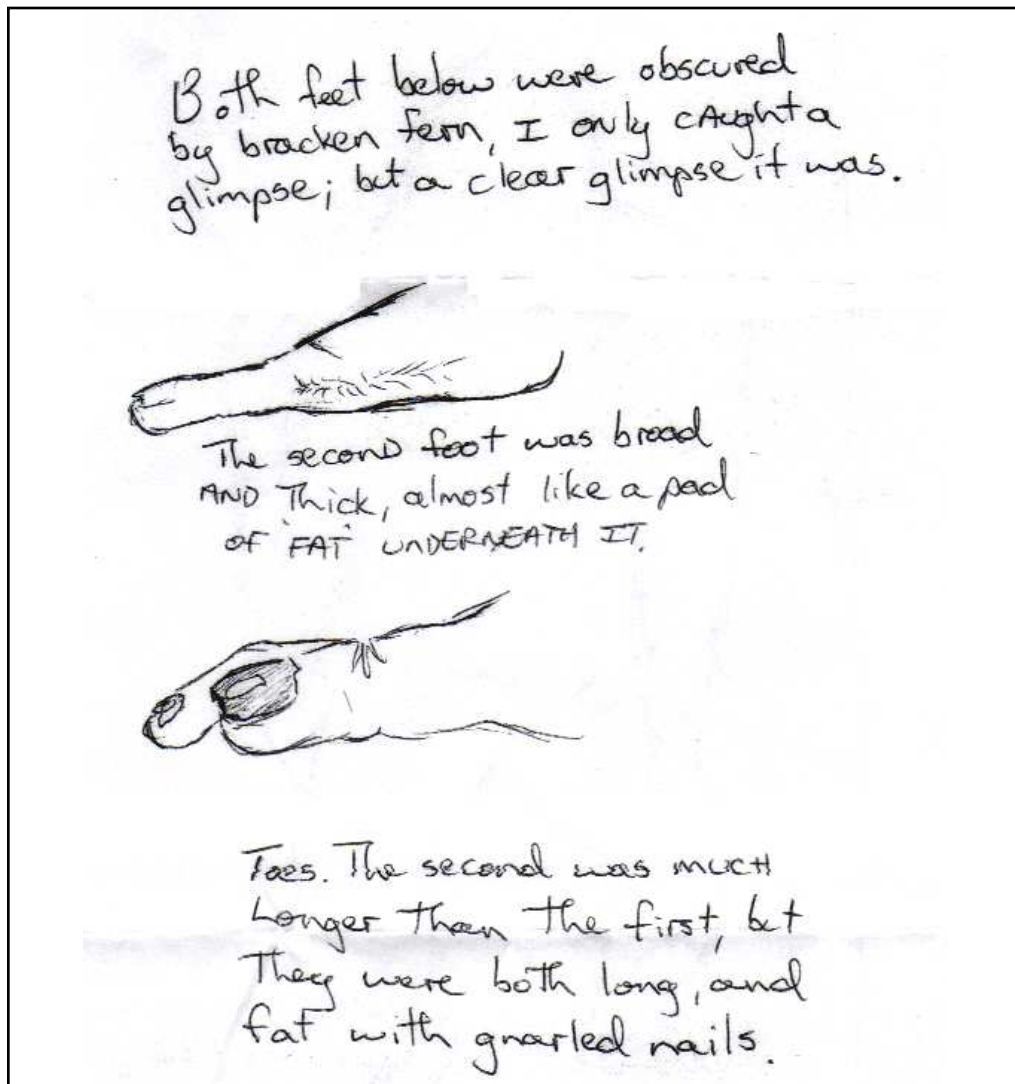 Both feet below were obscured
by bracken fern, I only cAught a
glimpse; but a clear glimpse it was.
The second foot was broad
AND Thick, almost like a pad
OF 'FAT' UNDERNEATH IT.
Toes. The second was mucH
Longer Than The first, but
They were both long, and
fat with gnarled nails.